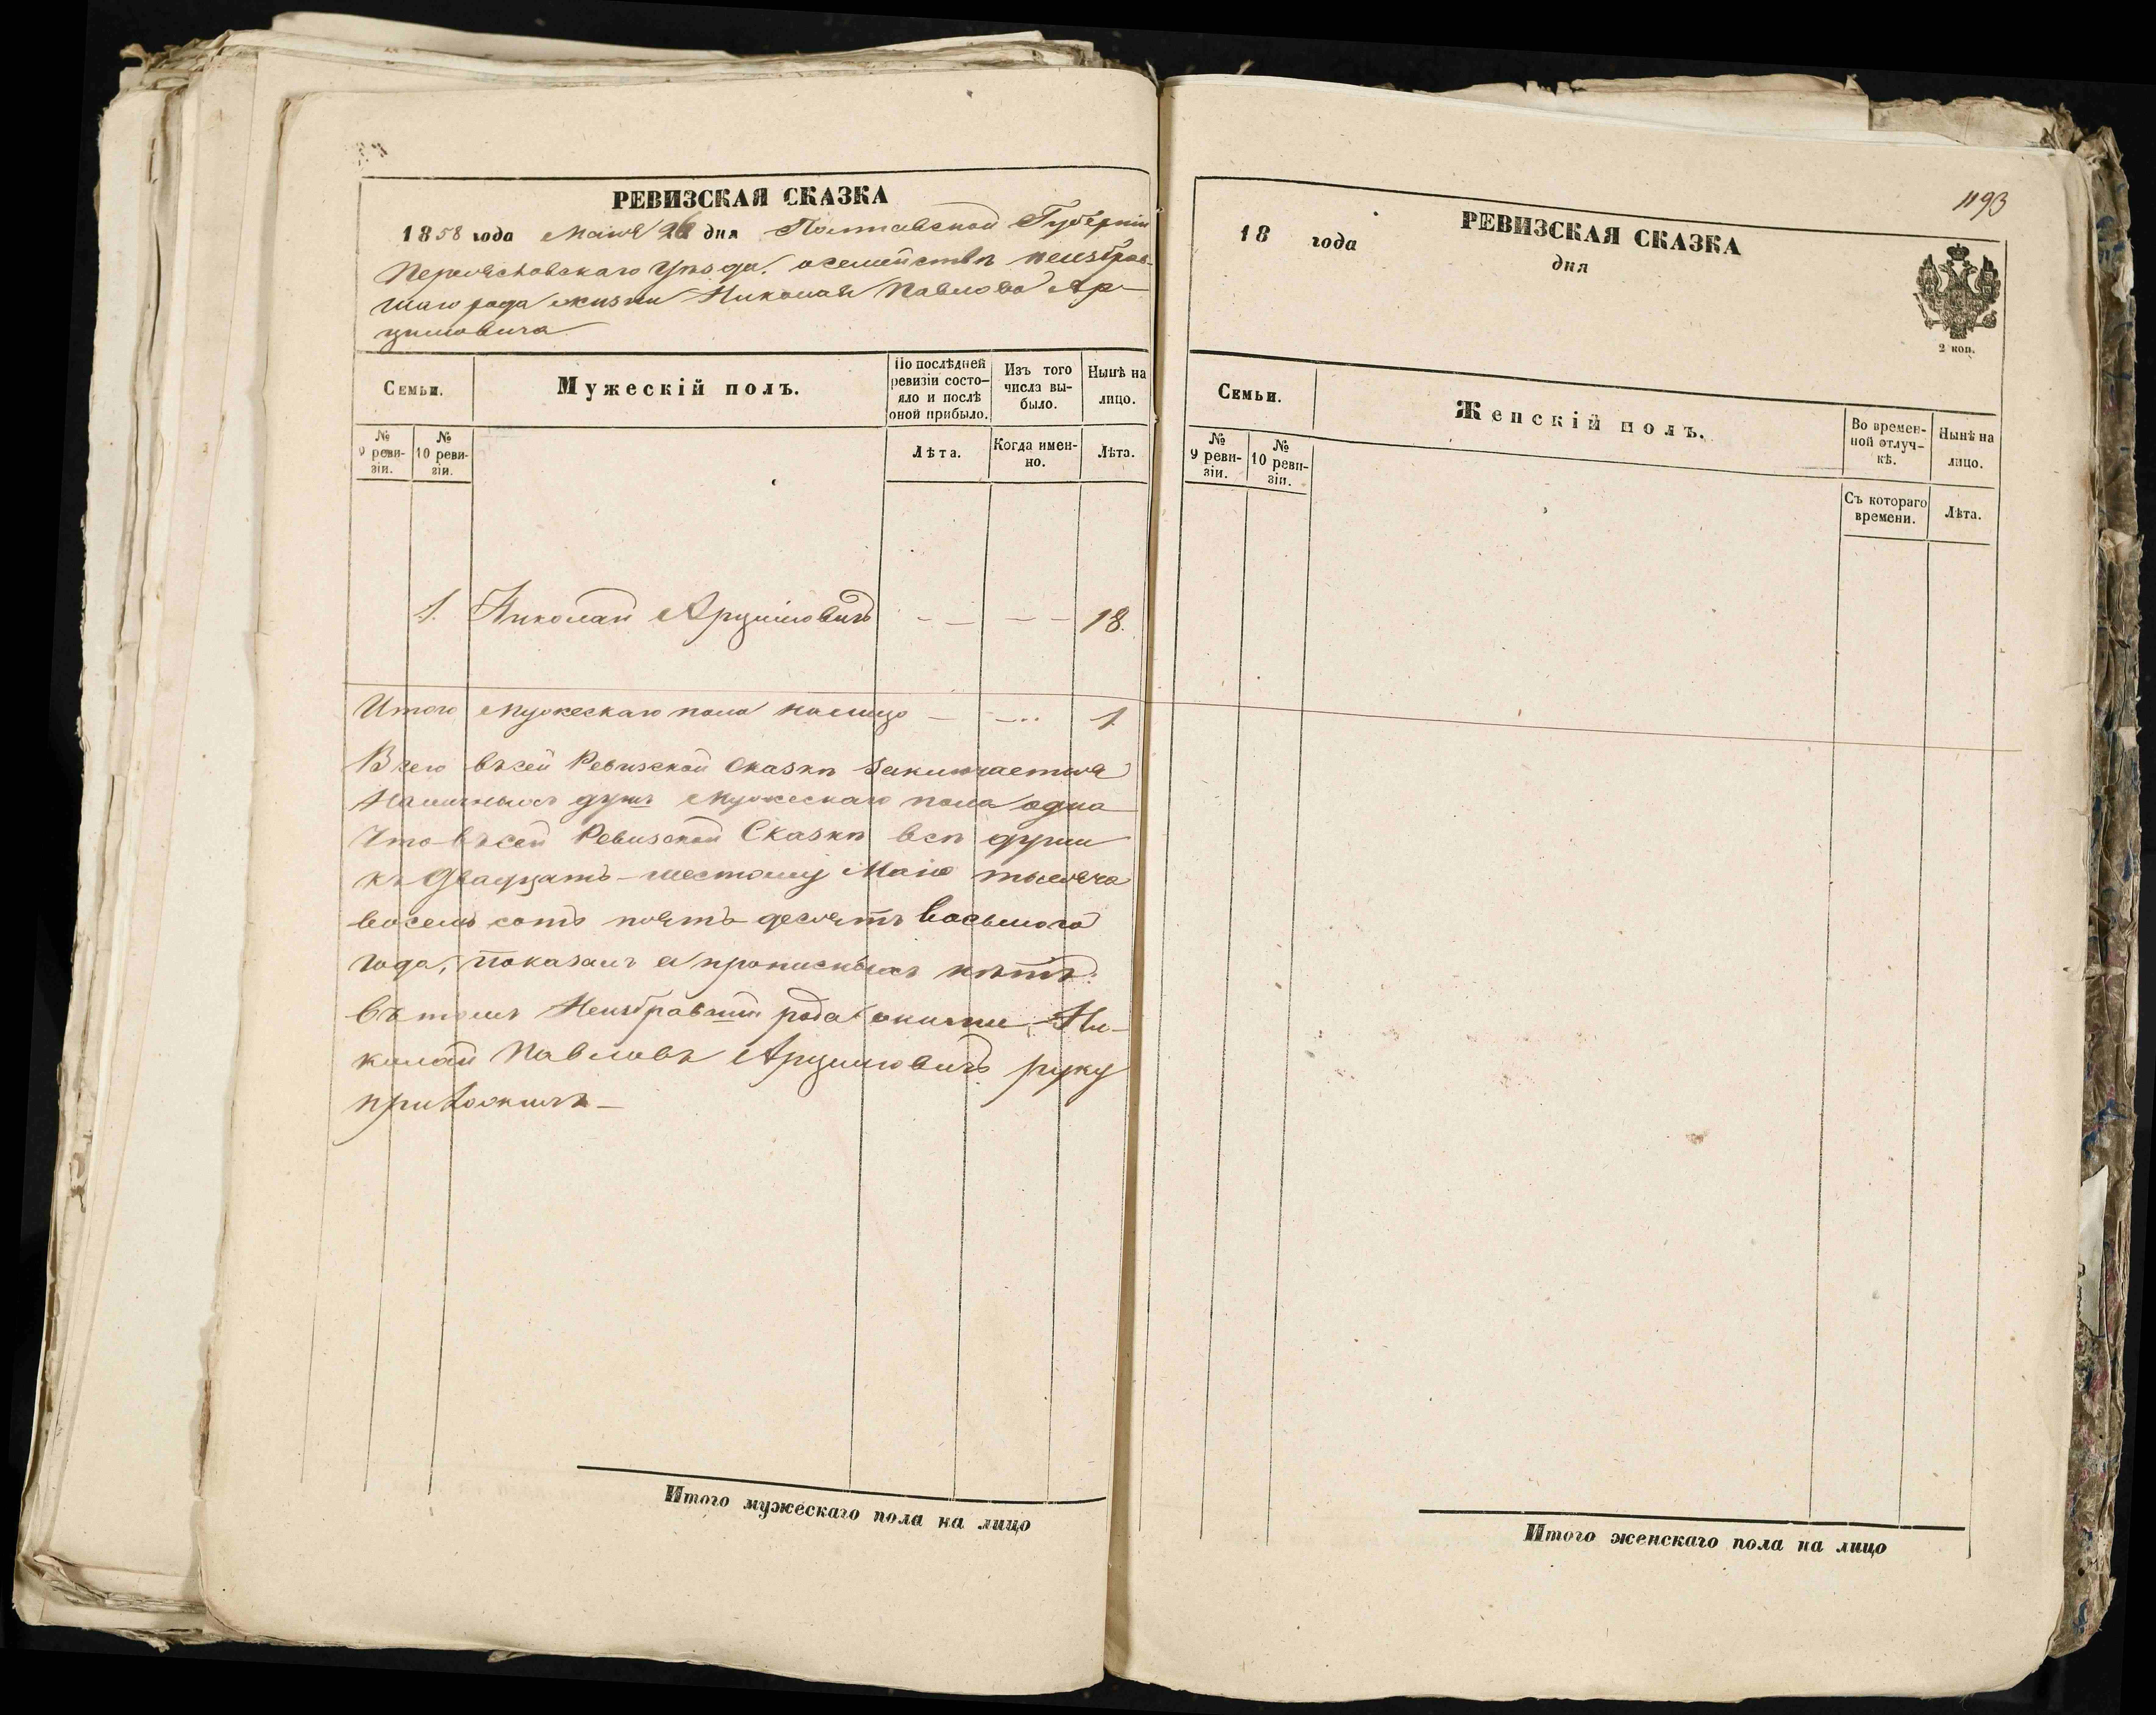 РЕВИЗСКАЯ СКАЗКА
1858 года Маия 26 дня Полтавской Губерніи
Переяславскаго Уѣзда, о семействѣ неизбрав-
шаго рода жизни Николая Павлова Ар-
цимовича
Семьи.
Мужескій полъ.
По послѣдней ревизіи состо-
яло и послѣ оной прибыло.
Изъ того числа вы-
было.
Нынѣ на лицо.
№ 9 реви-
зіи.
№ 10 реви-
зіи.
Лѣта.
Когда имен-
но.
Лѣта.
1. Николай Арцимовичъ — — — — 18.
Итого мужескаго пола налицо — —... 1
Всего въ сей Ревизской Сказкѣ заключается
Наличныхъ душъ мужескаго пола одна
Что въ сей Ревизской Сказкѣ всѣ души
къ двадцать-шестому Маію тысяча
восемь сотъ пять десятъ восьмого
года, показаны и прописныхъ нѣтъ:
въ томъ Неизбравшій рода жизни Ни-
колай Павловъ Арцимовичъ руку
приложилъ —
Итого мужескаго пола на лицо
1193
РЕВИЗСКАЯ СКАЗКА
18 года дня
2 коп.
Семьи.
Женскій полъ.
Во времен-
ной отлуч-
кѣ.
Нынѣ на
лицо.
№ 9 реви-
зіи.
№ 10 реви-
зіи.
Съ котораго
времени.
Лѣта.
Итого женскаго пола на лицо